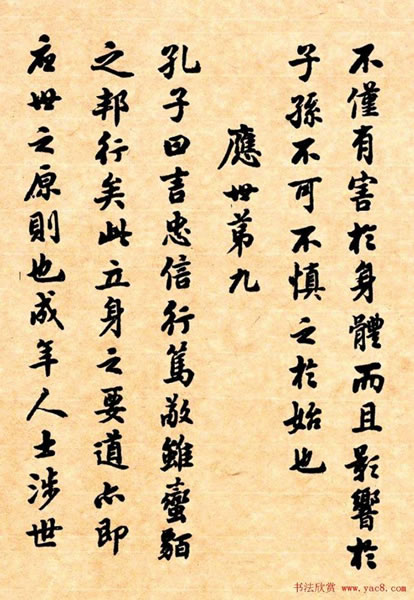 不僅有害於身體而且影響於
子孫不可不慎之於始也
應世第九
孔子曰言忠信行篤敬雖蠻貊
之邦行矣此立身之要道亦即
应世之原則也成年人士涉世
书法欣赏 www.yac8.com